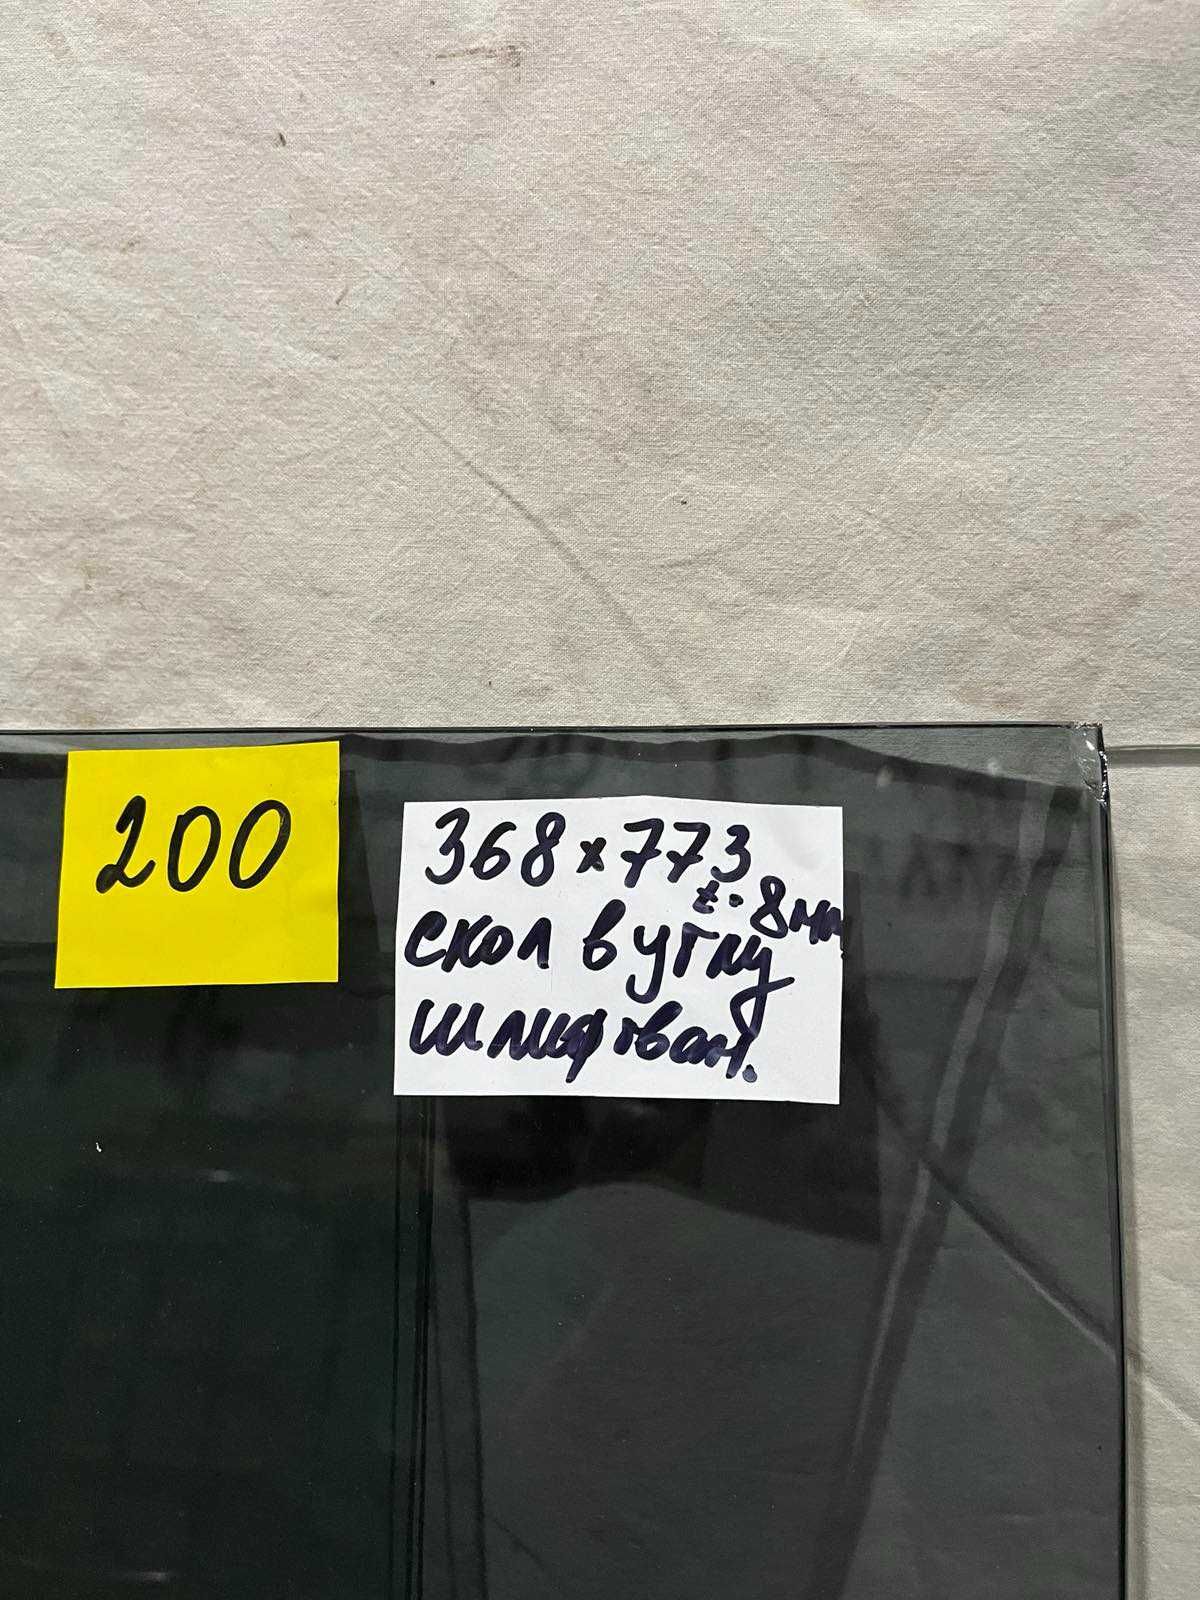 200
368 x 773
t. 8мм
скол в углу
шлифован.